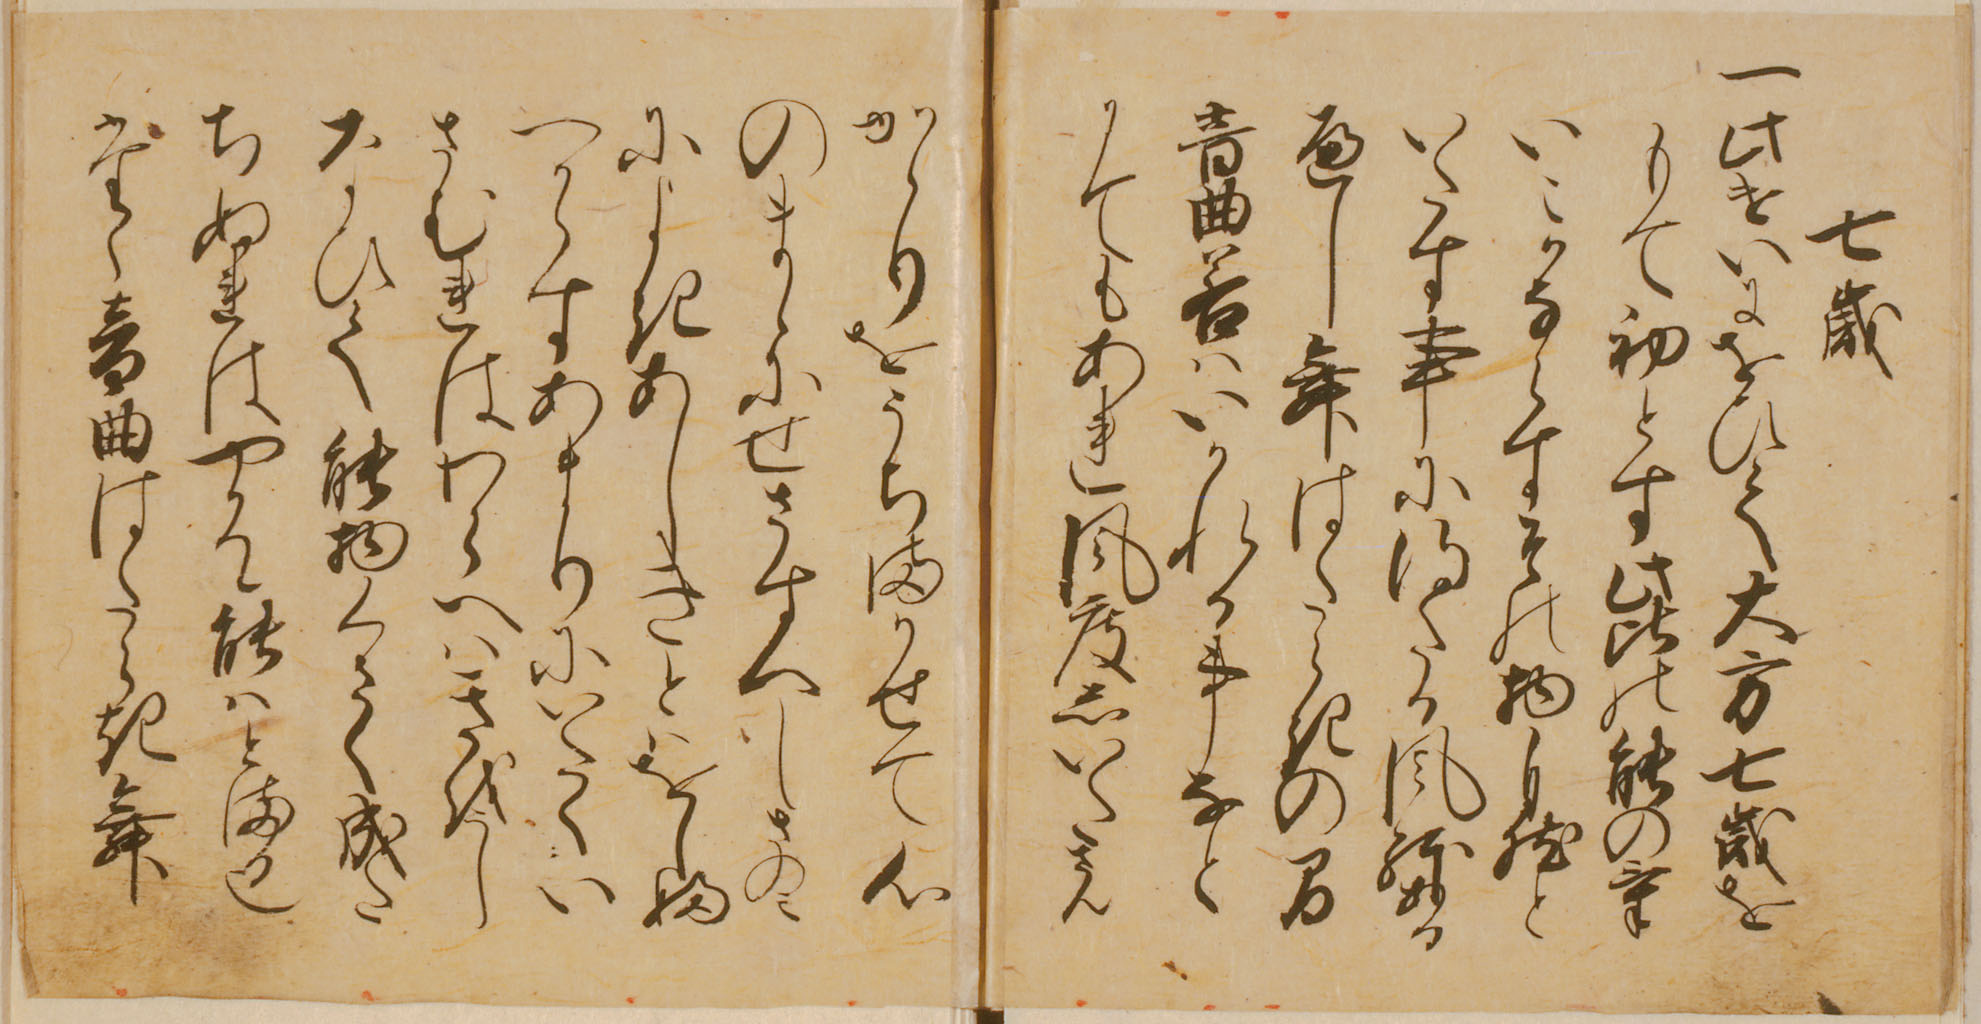 七歳
一此げいにをひて大方七歳を
もて初とす此比の能の稽
いこかならすその物自然と
いたす事にゆつたる風躰ある
遍し舞はたらきの間
音曲若はいかれる事なと
にてもあれ風度しいたさん
かゝりをうちまかせて心
のまゝにせさすへしさのみ
によきあしきとはをしふ
へからすあまりにいたくい
さむれはわらへはきをうし
なひて能物くさく成た
ちぬれはやかて能はとまる也
たゝ音曲はたらき舞